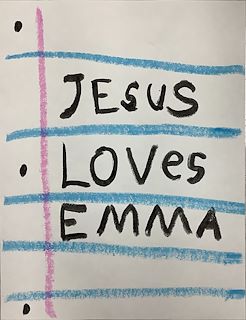 JESUS
LOVES
EMMA